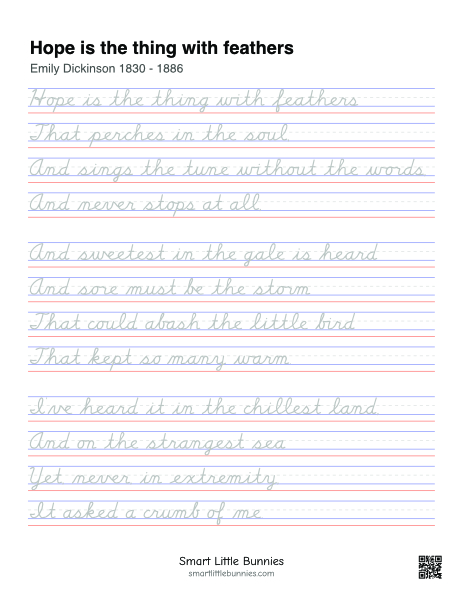 Hope is the thing with feathers
Emily Dickinson 1830 - 1886
Hope is the thing with feathers
That perches in the soul
And sings the tune without the words
And never stops at all
And sweetest in the gale is heard
And sore must be the storm
That could abash the little bird
That kept so many warm
I've heard it in the chillest land
And on the strangest sea
Yet never in extremity
It asked a crumb of me
Smart Little Bunnies
smartlittlebunnies.com